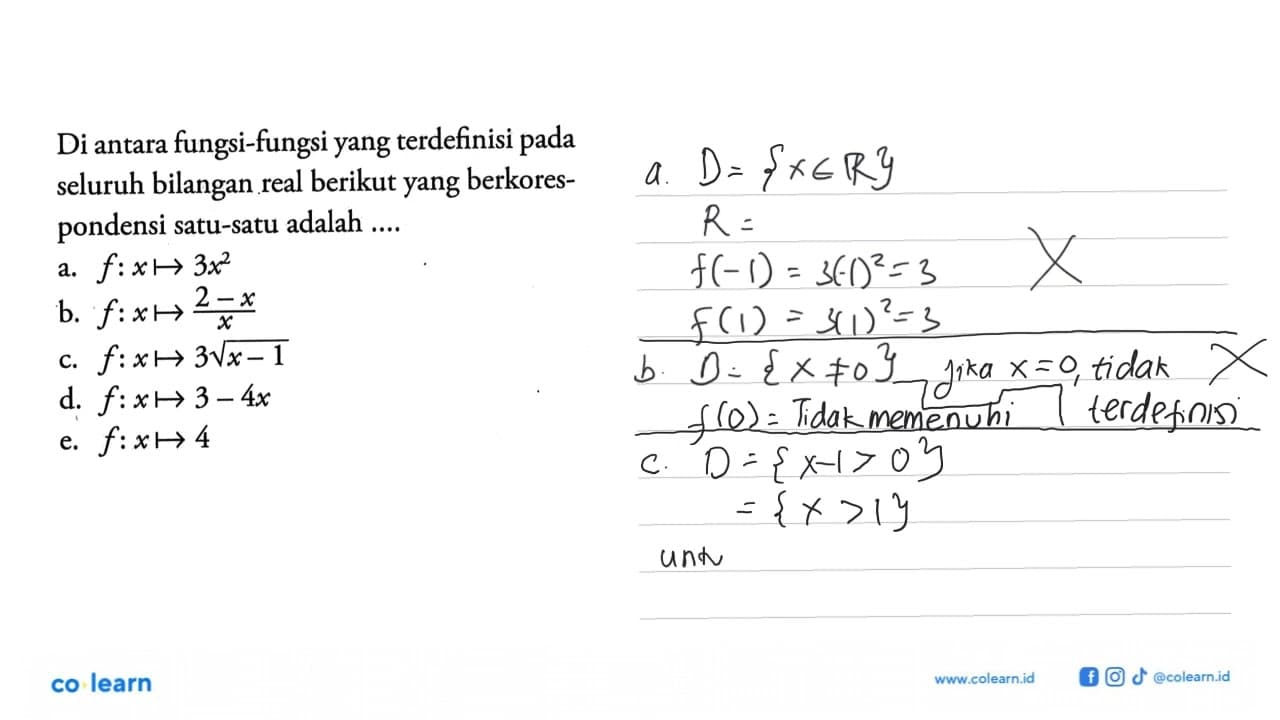 Di antara fungsi-fungsi yang terdefinisi pada
seluruh bilangan real berikut yang berkores-
pondensi satu-satu adalah ....
a. f: x ↦ 3x²
b. f: x ↦ (2 – x)/x
c. f: x ↦ 3√(x – 1)
d. f: x ↦ 3 – 4x
e. f: x ↦ 4
a. D = {x ∈ ℝ}
R =
f(-1) = 3(-1)² = 3 X
f(1) = 3(1)² = 3
b. D = {x ≠ 0} jika x = 0, tidak terdefinisi X
f(0) = Tidak memenuhi
c. D = {x-1 > 0}
= {x > 1}
untu
co learn
www.colearn.id
@colearn.id